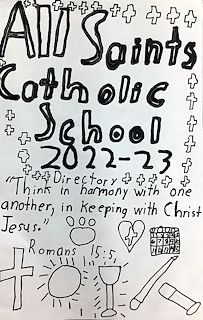 All Saints
Catholic
School
2022-23
Directory
"Think in harmony with one
another, in keeping with Christ
Jesus."
Romans 15:5